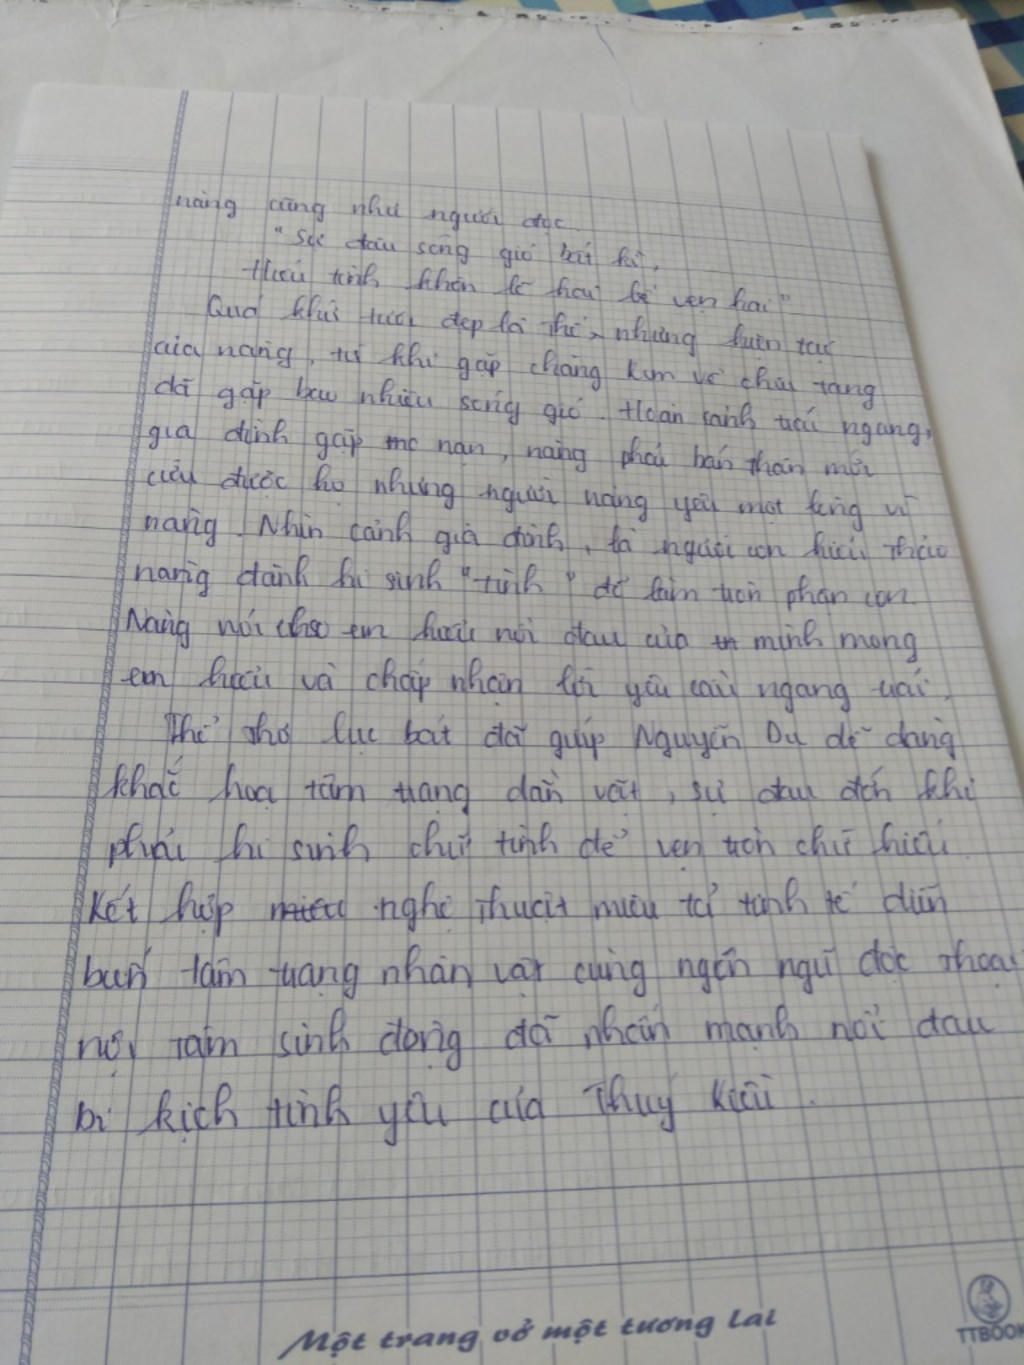 nàng cũng như người đọc.
"Sự đâu sóng gió bất kì,
Hiếu tình khôn lẽ hai bề vẹn hai"
Quá khứ tươi đẹp là thế, nhưng hiện tại
của nàng, từ khi gặp chàng Kim về chàng
đã gặp bao nhiêu sóng gió. Hoàn cảnh trái ngang,
gia đình gặp nạn, nàng phải bán thân mới
cứu được họ những người nàng yêu một lòng vì
nàng. Nhìn cảnh gia đình, là người con hiếu thảo
nàng đành hi sinh "tình" để làm tròn phận con.
Nàng nói cho em hiểu nỗi đau của mình mong
em hiểu và chấp nhận lời yêu cầu ngang trái.
Thể thơ lục bát đã giúp Nguyễn Du dễ dàng
khắc hoạ tâm trạng dằn vặt, sự đau đớn khi
phải hi sinh chữ tình để vẹn tròn chữ hiếu.
Kết hợp nghệ thuật miêu tả tinh tế diễn
biến tâm trạng nhân vật cùng ngôn ngữ độc thoại
nội tâm sinh động đã nhấn mạnh nỗi đau
bi kịch tình yêu của Thuý Kiều.
Một trang vở một tương lai
TTBOOK